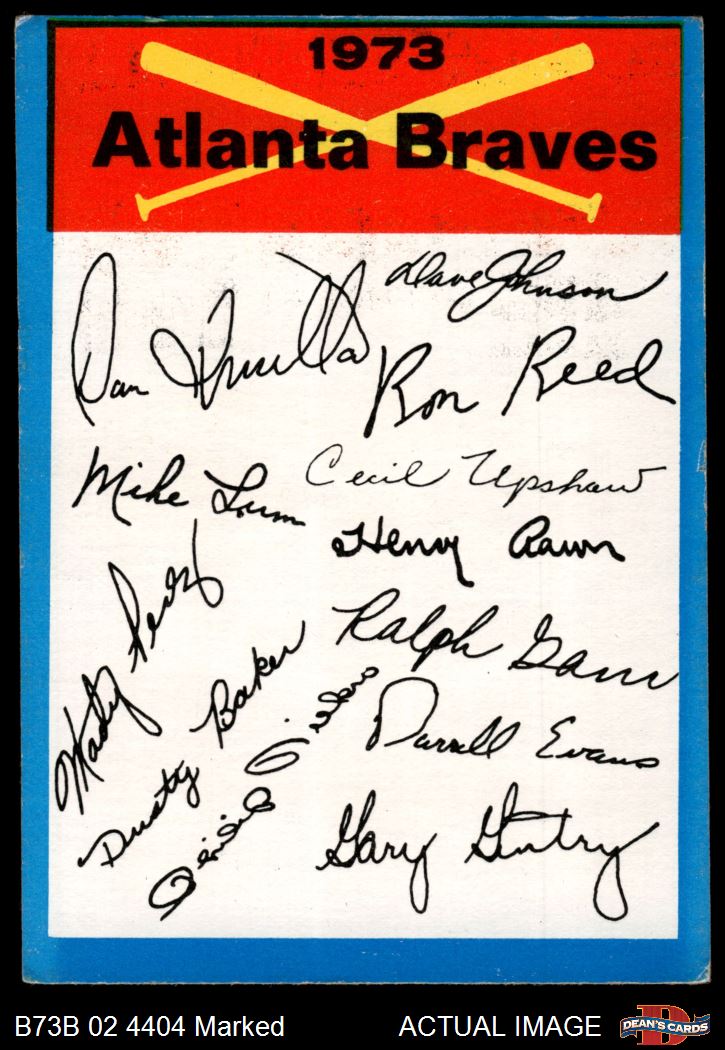 1973
Atlanta Braves
Dave Johnson
Dan
Ron Reed
Mike Lum
Cecil Upshaw
Henry Aaron
Marty Perez
Ralph Garr
Dusty Baker
Darrell Evans
Gary Gentry
B73B 02 4404 Marked
ACTUAL IMAGE
D
DEAN'S CARDS